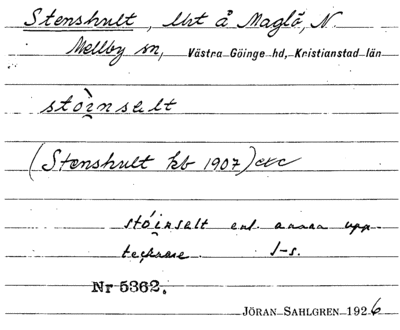 Stenshult, lht å Maglö, N.
Mellby sn, Västra Göinge hd, Kristianstad län
stòi̯nsəlt
(Stenshult kb 1907) etc
stói̯nsəlt enl. annan upp-
tecknare J-s.
Nr 5362.
JÖRAN SAHLGREN 1926